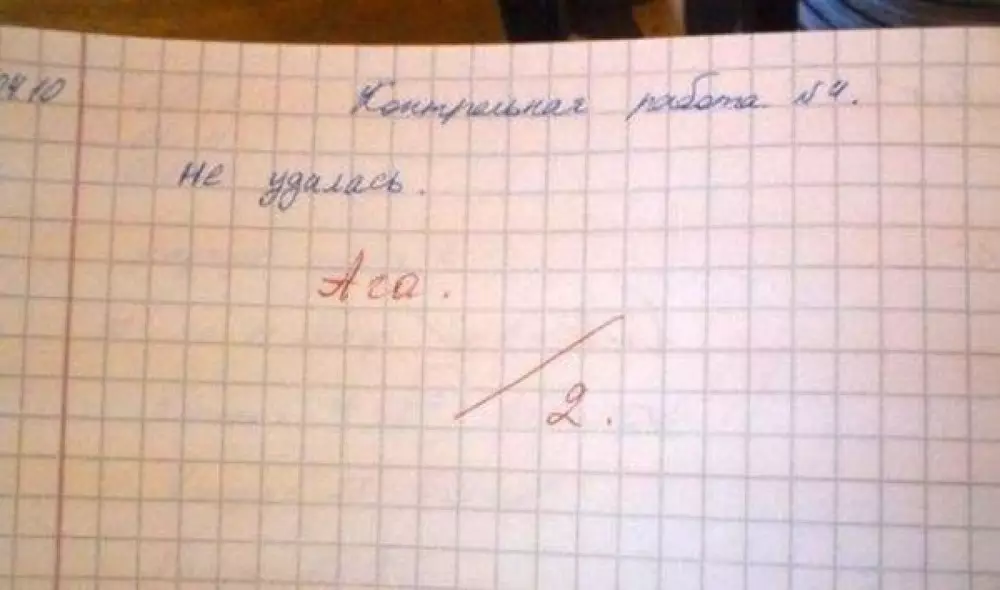 Контрольная работа №4.
не удалась.
Ага.
2.